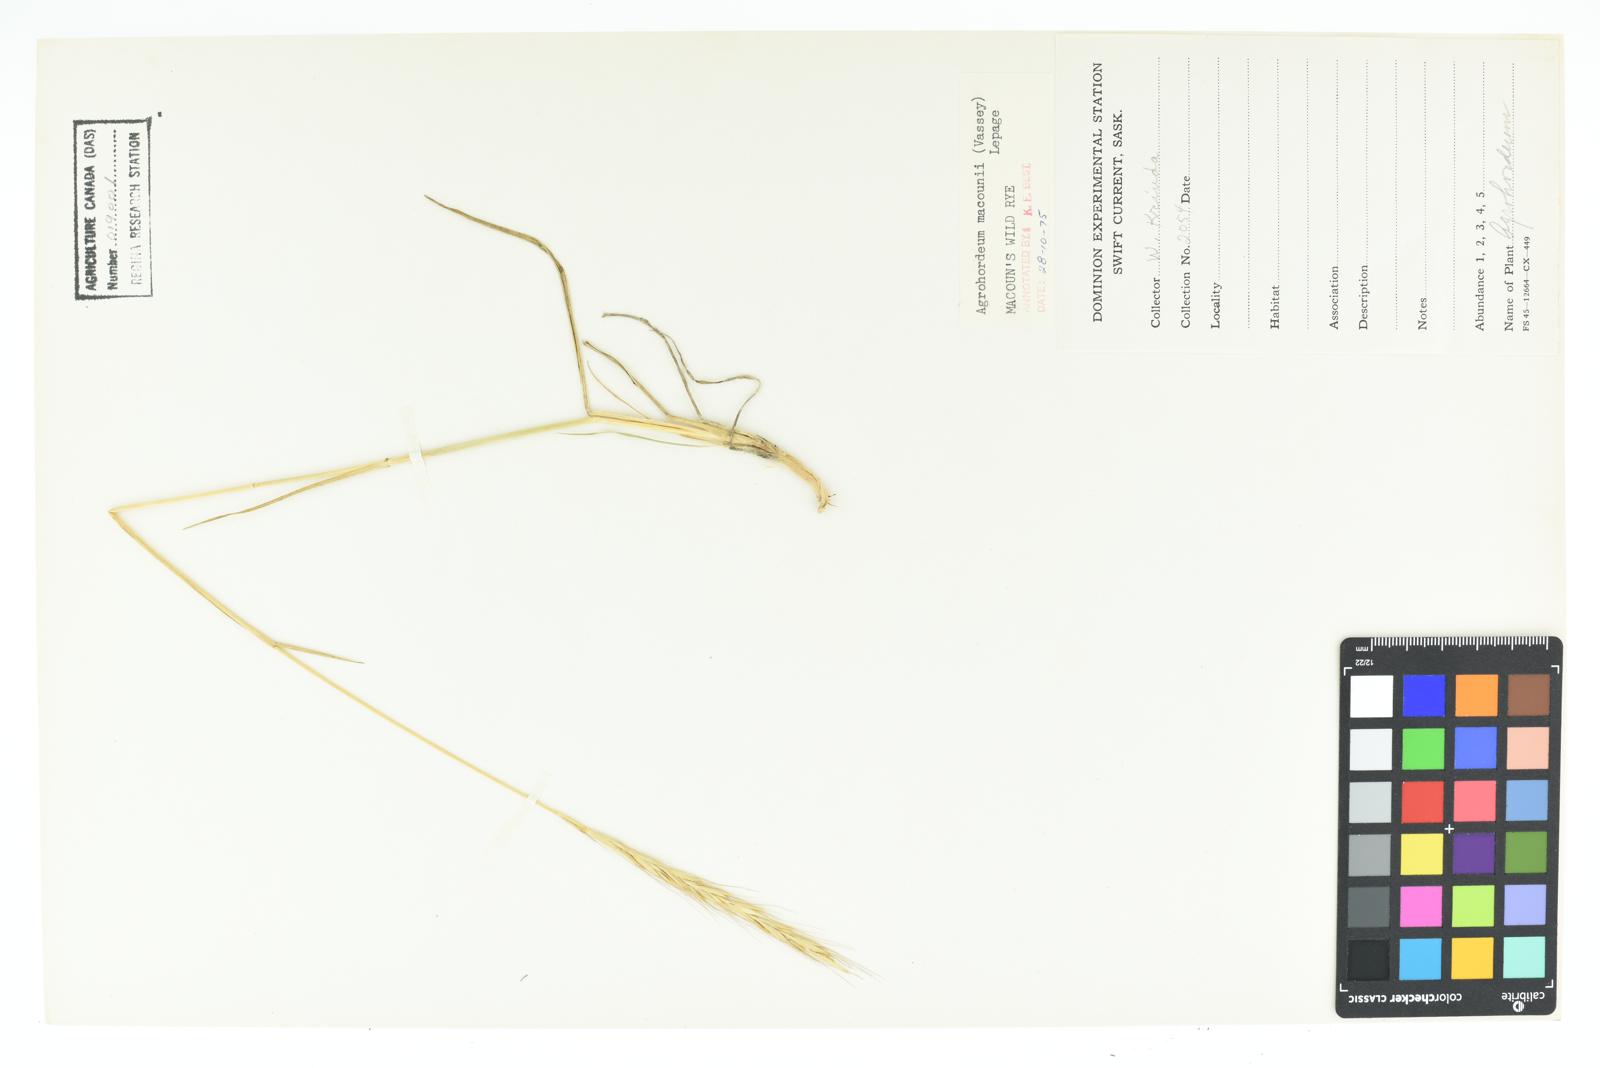 AGRICULTURE CANADA (DAS)
Number 019001
REGINA RESEARCH STATION
Agrohordeum macounii (Vassey)
Lepage
MACOUN'S WILD RYE
ANNOTATED BY: K. F. BEST
DATE: 28-10-75
DOMINION EXPERIMENTAL STATION
SWIFT CURRENT, SASK.
Collector W.
Collection No. 2054 Date
Locality
Habitat
Association
Description
Notes
Abundance 1, 2, 3, 4, 5
Name of Plant Agrohordeum
FS 45—12664—CX—449
colorchecker CLASSIC
calibrite
12/22
mm